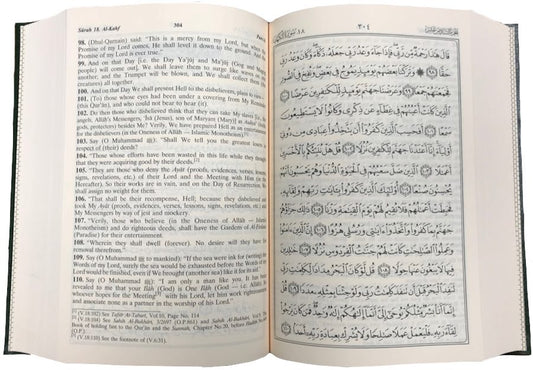 Sûrah 18. Al-Kahf 304 Part
98. (Dhul-Qarnain) said: "This is a mercy from my Lord, but when
Promise of my Lord comes, He shall level it down to the ground. And
Promise of my Lord is ever true."
99. And on that Day [i.e. the Day Ya'jûj and Ma'jûj (Gog and
people) will come out], We shall leave them to surge like waves on
another; and the Trumpet will be blown, and We shall collect them
(creatures) all together.
100. And on that Day We shall present Hell to the disbelievers, plain to view
101. (To) those whose eyes had been under a covering from My Reminder
(this Qur'ân), and who could not bear to hear (it).
102. Do then those who disbelieved think that they can take My slaves [i.e., the
angels, Allâh's Messengers, 'Îsâ (Jesus), son of Maryam (Mary)] as Auliyâ'
gods, protectors) besides Me? Verily, We have prepared Hell as an entertainment
for the disbelievers (in the Oneness of Allâh — Islamic Monotheism)
103. Say (O Muhammad ﷺ): "Shall We tell you the greatest losers in
respect of (their) deeds?
104. "Those whose efforts have been wasted in this life while they thought
that they were acquiring good by their deeds.
105. "They are those who deny the Ayât (proofs, evidences, verses, lessons,
signs, revelations, etc.) of their Lord and the Meeting with Him (in the
Hereafter). So their works are in vain, and on the Day of Resurrection, We
shall assign no weight for them.
106. "That shall be their recompense, Hell; because they disbelieved and
took My Ayât (proofs, evidences, verses, lessons, signs, revelations, etc.) and
My Messengers by way of jest and mockery.
107. "Verily, those who believe (in the Oneness of Allâh — Islamic
Monotheism) and do righteous deeds, shall have the Gardens of Al-Firdaus
(Paradise) for their entertainment.
108. "Wherein they shall dwell (forever). No desire will they have for
removal therefrom."
109. Say (O Muhammad ﷺ to mankind): "If the sea were ink for (writing) the
Words of my Lord, surely the sea would be exhausted before the Words of my
Lord would be finished, even if we brought (another sea) like it for its aid."
110. Say (O Muhammad ﷺ): "I am only a man like you. It has been
revealed to me that your Ilâh (God) is One Ilâh (God — i.e. Allâh). So
whoever hopes for the Meeting with his Lord, let him work righteousness
and associate none as a partner in the worship of his Lord."
(V.18:102) See Tafsîr At-Tabarî, Vol.16, Page No. 114
(V.18:110) See Sahih Al-Bukhâri, Vol.
Book of holding fast to the Qur'ân and the Sunnah, Chapter No.20, before Hadith
(O.P.)
See the footnote of (V.6:31).
٣٠٤ سورة الكهف ١٨
قَالَ هَٰذَا رَحْمَةٌ مِّن رَّبِّي فَإِذَا جَاءَ وَعْدُ رَبِّي جَعَلَهُ دَكَّاءَ وَكَانَ وَعْدُ رَبِّي
حَقًّا ٩٨ وَتَرَكْنَا بَعْضَهُمْ يَوْمَئِذٍ يَمُوجُ فِي بَعْضٍ وَنُفِخَ فِي الصُّورِ
فَجَمَعْنَاهُمْ جَمْعًا ٩٩ وَعَرَضْنَا جَهَنَّمَ يَوْمَئِذٍ لِّلْكَافِرِينَ عَرْضًا ١٠٠
الَّذِينَ كَانَتْ أَعْيُنُهُمْ فِي غِطَاءٍ عَن ذِكْرِي وَكَانُوا لَا يَسْتَطِيعُونَ
سَمْعًا ١٠١ أَفَحَسِبَ الَّذِينَ كَفَرُوا أَن يَتَّخِذُوا عِبَادِي مِن دُونِي
أَوْلِيَاءَ إِنَّا أَعْتَدْنَا جَهَنَّمَ لِلْكَافِرِينَ نُزُلًا ١٠٢ قُلْ هَلْ نُنَبِّئُكُم بِالْأَخْسَرِينَ
أَعْمَالًا ١٠٣ الَّذِينَ ضَلَّ سَعْيُهُمْ فِي الْحَيَاةِ الدُّنْيَا وَهُمْ يَحْسَبُونَ أَنَّهُمْ
يُحْسِنُونَ صُنْعًا ١٠٤ أُولَٰئِكَ الَّذِينَ كَفَرُوا بِآيَاتِ رَبِّهِمْ وَلِقَائِهِ
فَحَبِطَتْ أَعْمَالُهُمْ فَلَا نُقِيمُ لَهُمْ يَوْمَ الْقِيَامَةِ وَزْنًا ١٠٥ ذَٰلِكَ جَزَاؤُهُمْ
جَهَنَّمُ بِمَا كَفَرُوا وَاتَّخَذُوا آيَاتِي وَرُسُلِي هُزُوًا ١٠٦ إِنَّ الَّذِينَ آمَنُوا
وَعَمِلُوا الصَّالِحَاتِ كَانَتْ لَهُمْ جَنَّاتُ الْفِرْدَوْسِ نُزُلًا ١٠٧ خَالِدِينَ فِيهَا
لَا يَبْغُونَ عَنْهَا حِوَلًا ١٠٨ قُل لَّوْ كَانَ الْبَحْرُ مِدَادًا لِّكَلِمَاتِ رَبِّي لَنَفِدَ
الْبَحْرُ قَبْلَ أَن تَنفَدَ كَلِمَاتُ رَبِّي وَلَوْ جِئْنَا بِمِثْلِهِ مَدَدًا ١٠٩ قُلْ إِنَّمَا
أَنَا بَشَرٌ مِّثْلُكُمْ يُوحَىٰ إِلَيَّ أَنَّمَا إِلَٰهُكُمْ إِلَٰهٌ وَاحِدٌ فَمَن كَانَ يَرْجُو
لِقَاءَ رَبِّهِ فَلْيَعْمَلْ عَمَلًا صَالِحًا وَلَا يُشْرِكْ بِعِبَادَةِ رَبِّهِ أَحَدًا ١١٠